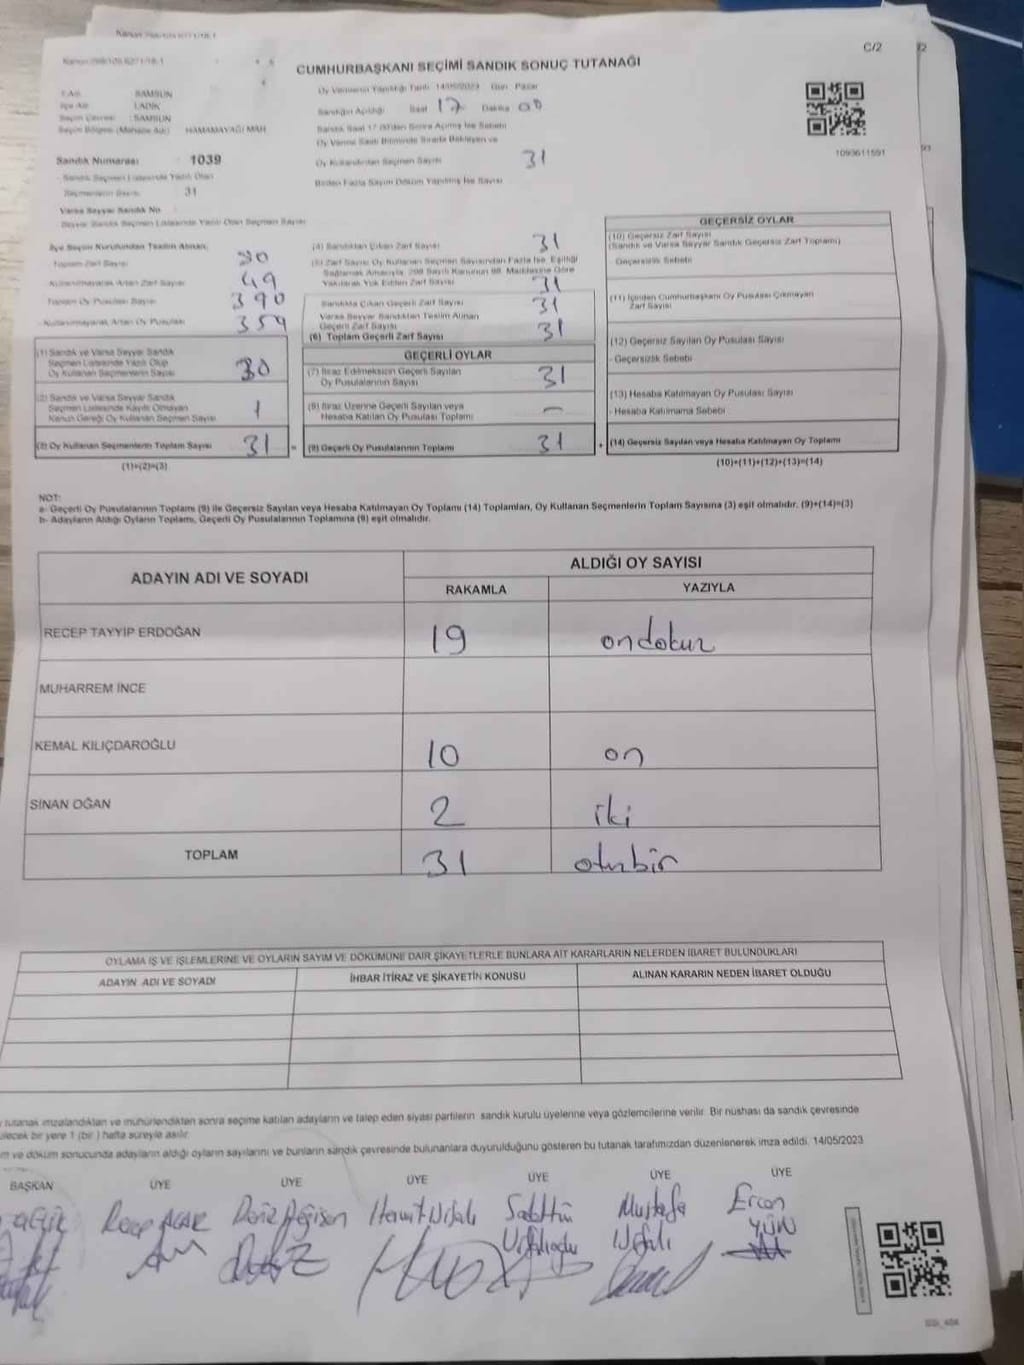 C/2
CUMHURBAŞKANI SEÇİMİ SANDIK SONUÇ TUTANAĞI
İli SAMSUN
İlçe Adı LADİK
Seçim Çevresi SAMSUN
Seçim Bölgesi (Mahalle Adı) HAMAMAYAĞI MAH
Sandık Numarası 1039
Sandık Seçmen Listesinde Yazılı Olan
Seçmenlerin Sayısı 31
Varsa Seyyar Sandık No
Seyyar Sandık Seçmen Listesinde Yazılı Olan Seçmen Sayısı
Oy Vermenin Yapıldığı Tarih 14/05/2023 Gün Pazar
Sandığın Açıldığı Saat 17 Dakika 00
Oy Kullandırılan Seçmen Sayısı 31
Birden Fazla Sayım Döküm Yapılmış İse Sayısı
1093611591
İlçe Seçim Kurulundan Teslim Alınan
Toplam Zarf Sayısı
Kullanılmayarak Artan Zarf Sayısı 49
Toplam Oy Pusulası Sayısı 390
Kullanılmayarak Artan Oy Pusulası 359
(1) Sandık ve Varsa Seyyar Sandık
Seçmen Listesinde Yazılı Olup
Oy Kullanan Seçmenlerin Sayısı 30
(2) Sandık ve Varsa Seyyar Sandık
Seçmen Listesinde Kayıtlı Olmayan
Kanun Gereği Oy Kullanan Seçmen Sayısı 1
(3) Oy Kullanan Seçmenlerin Toplam Sayısı 31
(1)+(2)=(3)
(4) Sandıktan Çıkan Zarf Sayısı 31
(5) Zarf Sayısı Oy Kullanan Seçmen Sayısından Fazla İse, Eşitliği
Sağlamak Amacıyla, 298 Sayılı Kanunun 98. Maddesine Göre
Yakılarak Yok Edilen Zarf Sayısı 31
Sandıkta Çıkan Geçerli Zarf Sayısı 31
Varsa Seyyar Sandıktan Teslim Alınan
Geçerli Zarf Sayısı
(6) Toplam Geçerli Zarf Sayısı 31
GEÇERLİ OYLAR
(7) İtiraz Edilmeksizin Geçerli Sayılan
Oy Pusulalarının Sayısı 31
(8) İtiraz Üzerine Geçerli Sayılan veya
Hesaba Katılan Oy Pusulası Toplamı —
(9) Geçerli Oy Pusulalarının Toplamı 31
GEÇERSİZ OYLAR
(10) Geçersiz Zarf Sayısı
(Sandık ve Varsa Seyyar Sandık Geçersiz Zarf Toplamı)
- Geçersizlik Sebebi
(11) İçinden Cumhurbaşkanı Oy Pusulası Çıkmayan
Zarf Sayısı
(12) Geçersiz Sayılan Oy Pusulası Sayısı
- Geçersizlik Sebebi
(13) Hesaba Katılmayan Oy Pusulası Sayısı
- Hesaba Katılmama Sebebi
(14) Geçersiz Sayılan veya Hesaba Katılmayan Oy Toplamı
(10)+(11)+(12)+(13)=(14)
NOT:
a- Geçerli Oy Pusulalarının Toplamı (9) ile Geçersiz Sayılan veya Hesaba Katılmayan Oy Toplamı (14) Toplamları, Oy Kullanan Seçmenlerin Toplam Sayısına (3) eşit olmalıdır. (9)+(14)=(3)
b- Adayların Aldığı Oyların Toplamı, Geçerli Oy Pusulalarının Toplamına (9) eşit olmalıdır.
ADAYIN ADI VE SOYADI ALDIĞI OY SAYISI
RAKAMLA YAZIYLA
RECEP TAYYİP ERDOĞAN 19 ondokuz
MUHARREM İNCE
KEMAL KILIÇDAROĞLU 10 on
SİNAN OĞAN 2 iki
TOPLAM 31 otuzbir
OYLAMA İŞ VE İŞLEMLERİNE VE OYLARIN SAYIM VE DÖKÜMÜNE DAİR ŞİKAYETLERLE BUNLARA AİT KARARLARIN NELERDEN İBARET BULUNDUKLARI
ADAYIN ADI VE SOYADI İHBAR İTİRAZ VE ŞİKAYETİN KONUSU ALINAN KARARIN NEDEN İBARET OLDUĞU
tutanak imzalandıktan ve mühürlendikten sonra seçime katılan adayların ve talep eden siyasi partilerin sandık kurulu üyelerine veya gözlemcilerine verilir. Bir nüshası da sandık çevresinde
bir yere 1 (bir) hafta süreyle asılır.
ve döküm sonucunda adayların aldığı oyların sayılarını ve bunların sandık çevresinde bulunanlara duyurulduğunu gösteren bu tutanak tarafımızdan düzenlenerek imza edildi. 14/05/2023
BAŞKAN ÜYE ÜYE ÜYE ÜYE ÜYE ÜYE
Recep ACAR
Mustafa
Ercan